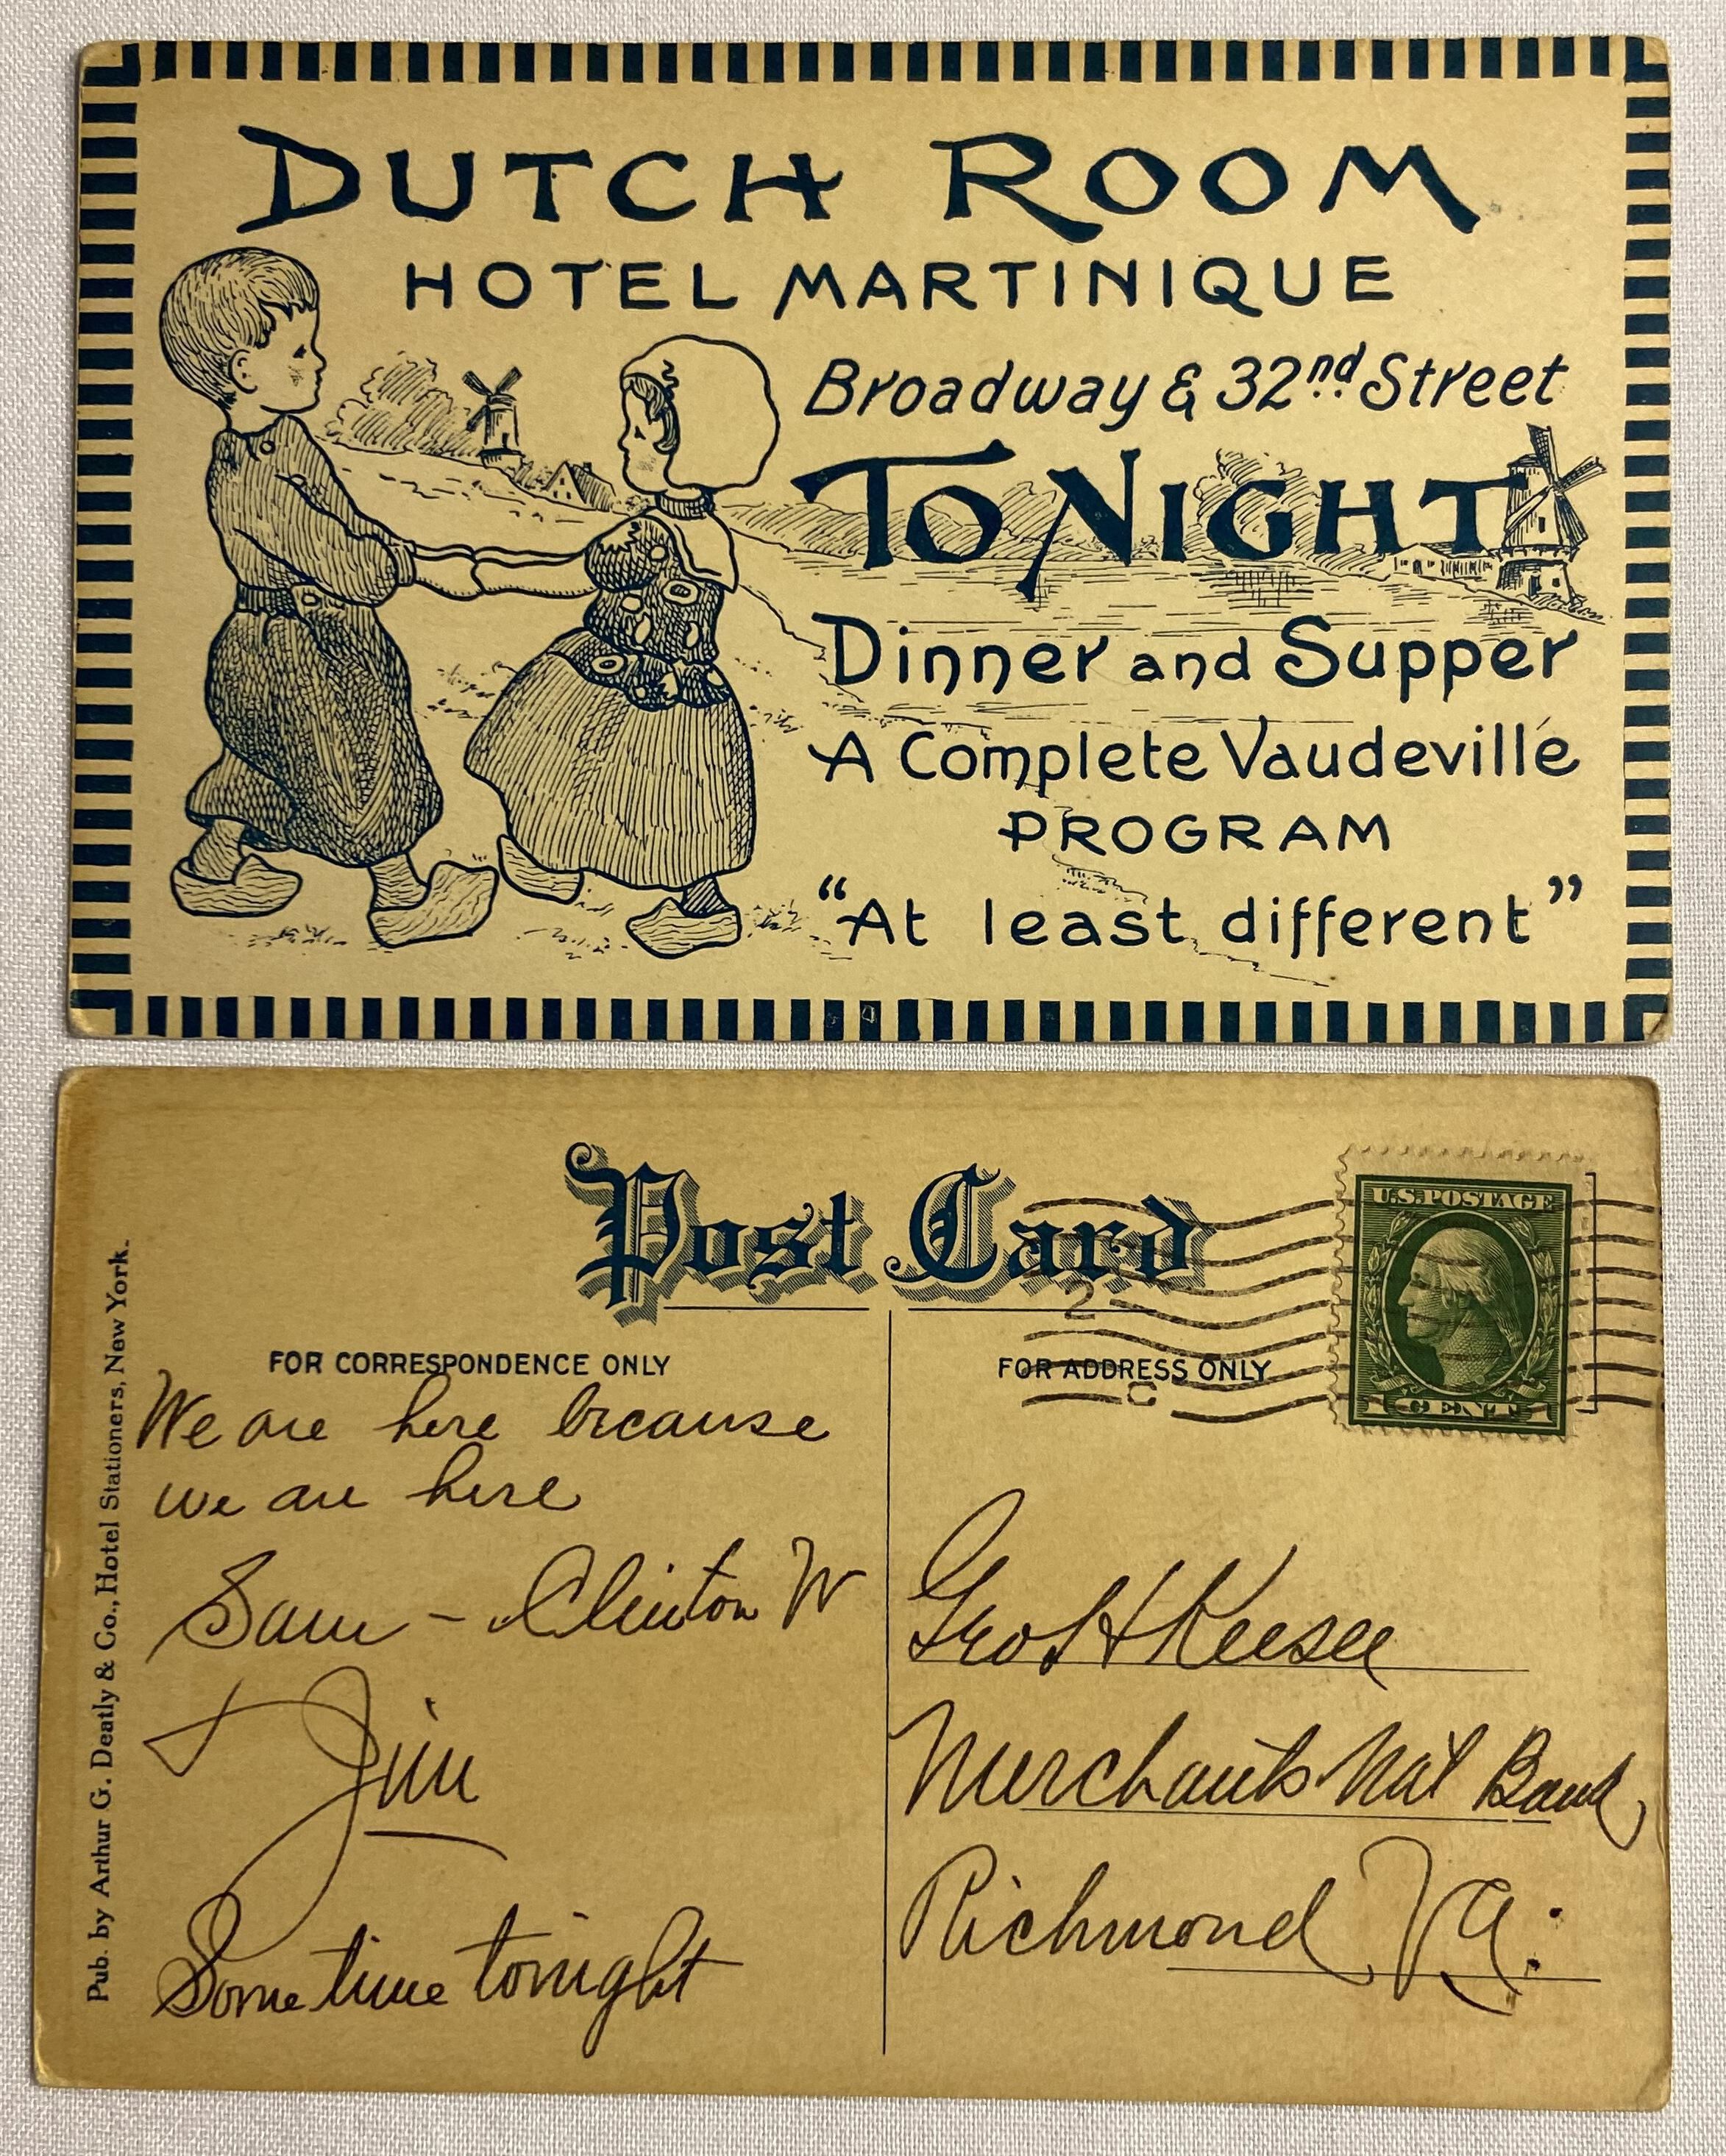 DUTCH ROOM
HOTEL MARTINIQUE
Broadway & 32nd Street
TONIGHT
Dinner and Supper
A Complete Vaudeville
PROGRAM
“At least different”
Post Card
U.S. POSTAGE
1 CENT 1
2
C
FOR CORRESPONDENCE ONLY
FOR ADDRESS ONLY
Pub. by Arthur G. Deatly & Co., Hotel Stationers, New York.
We are here because
we are here
Sam - Clinton W
+ Jim
Sometime tonight
Geo H Keesee
Merchants Nat Bank
Richmond Va.